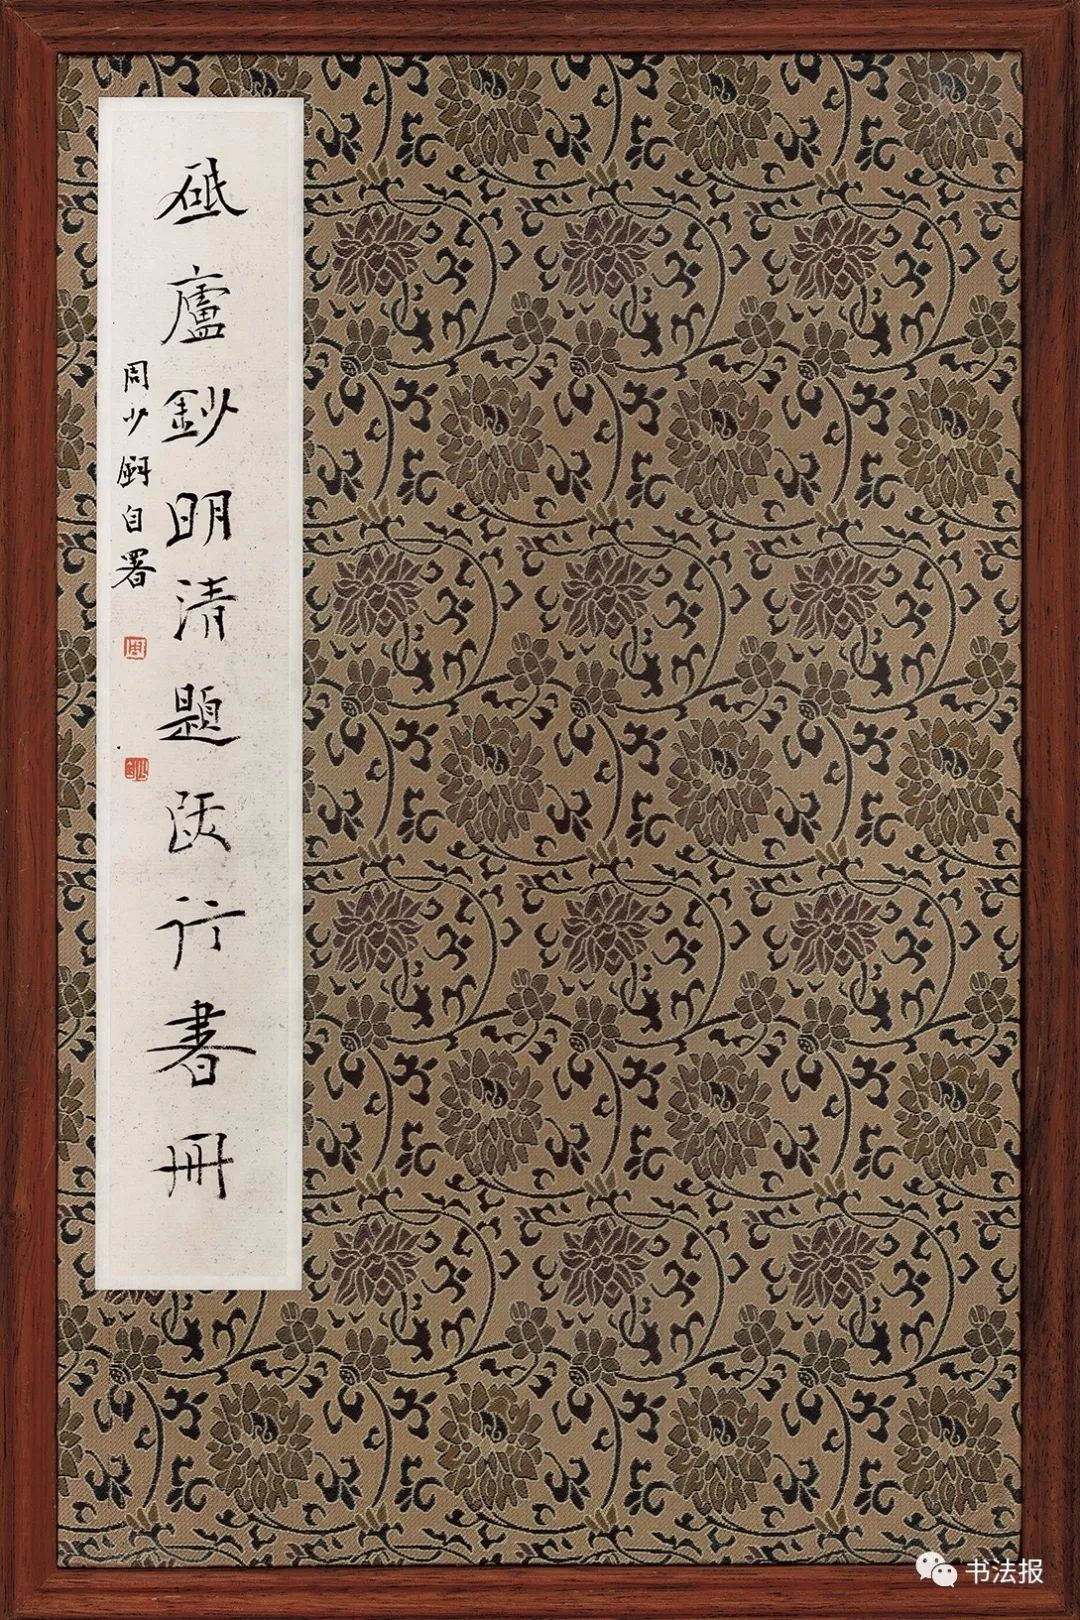 砥廬鈔明清題跋行書冊
周少劍自署
周
书法报